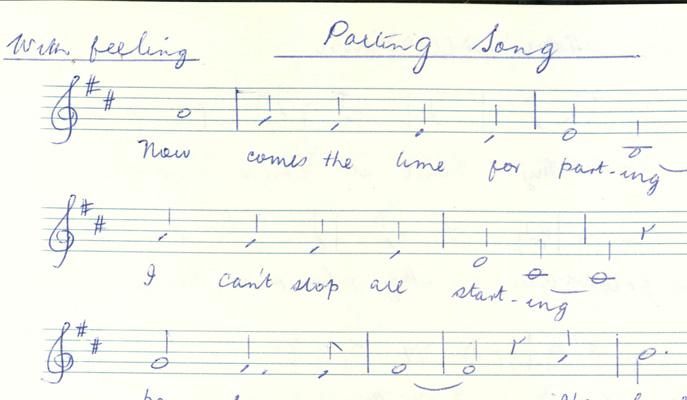 With feeling
Parting Song
Now comes the time for part-ing
I can't stop are start-ing